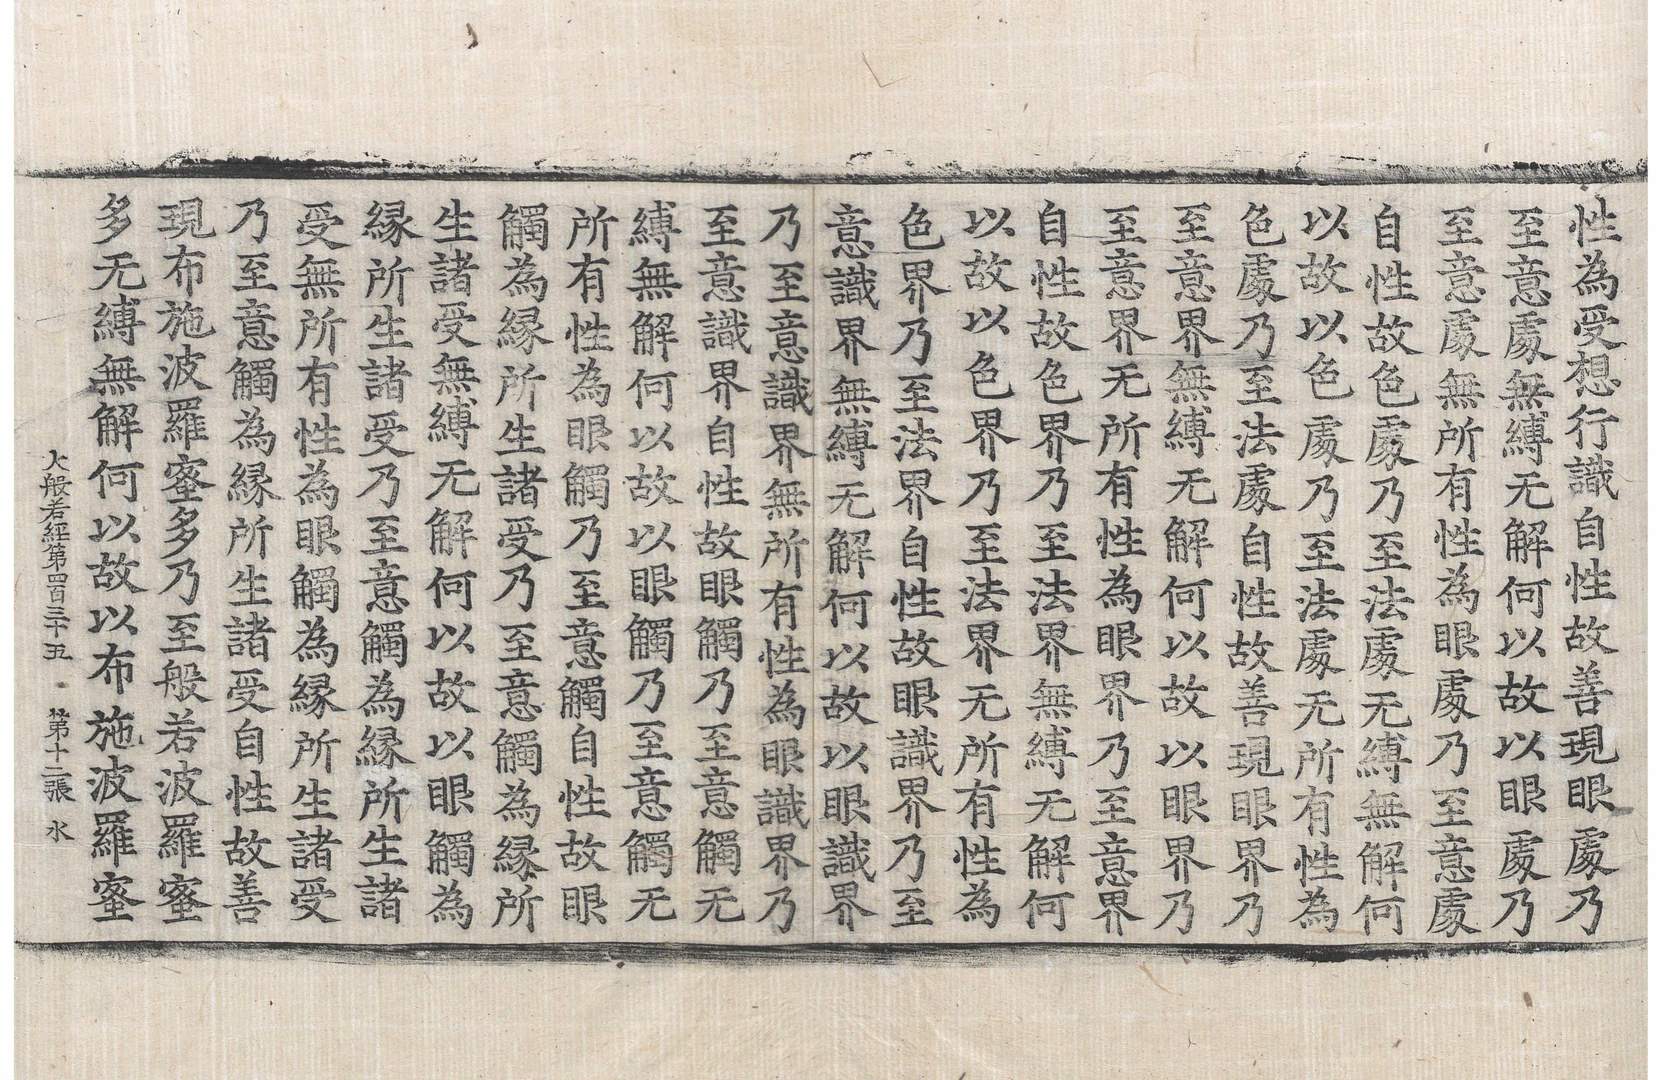 性為受想行識自性故善現眼處乃
至意處無縛无解何以故以眼處乃
至意處無所有性為眼處乃至意處
自性故色處乃至法處无縛無解何
以故以色處乃至法處无所有性為
色處乃至法處自性故善現眼界乃
至意界無縛无解何以故以眼界乃
至意界无所有性為眼界乃至意界
自性故色界乃至法界無縛无解何
以故以色界乃至法界无所有性為
色界乃至法界自性故眼識界乃至
意識界無縛无解何以故以眼識界
乃至意識界無所有性為眼識界乃
至意識界自性故眼觸乃至意觸无
縛無解何以故以眼觸乃至意觸无
所有性為眼觸乃至意觸自性故眼
觸為縁所生諸受乃至意觸為縁所
生諸受無縛无解何以故以眼觸為
縁所生諸受乃至意觸為縁所生諸
受無所有性為眼觸為縁所生諸受
乃至意觸為縁所生諸受自性故善
現布施波羅蜜多乃至般若波羅蜜
多无縛無解何以故以布施波羅蜜
大般若經第四百三十五 第十二張 水